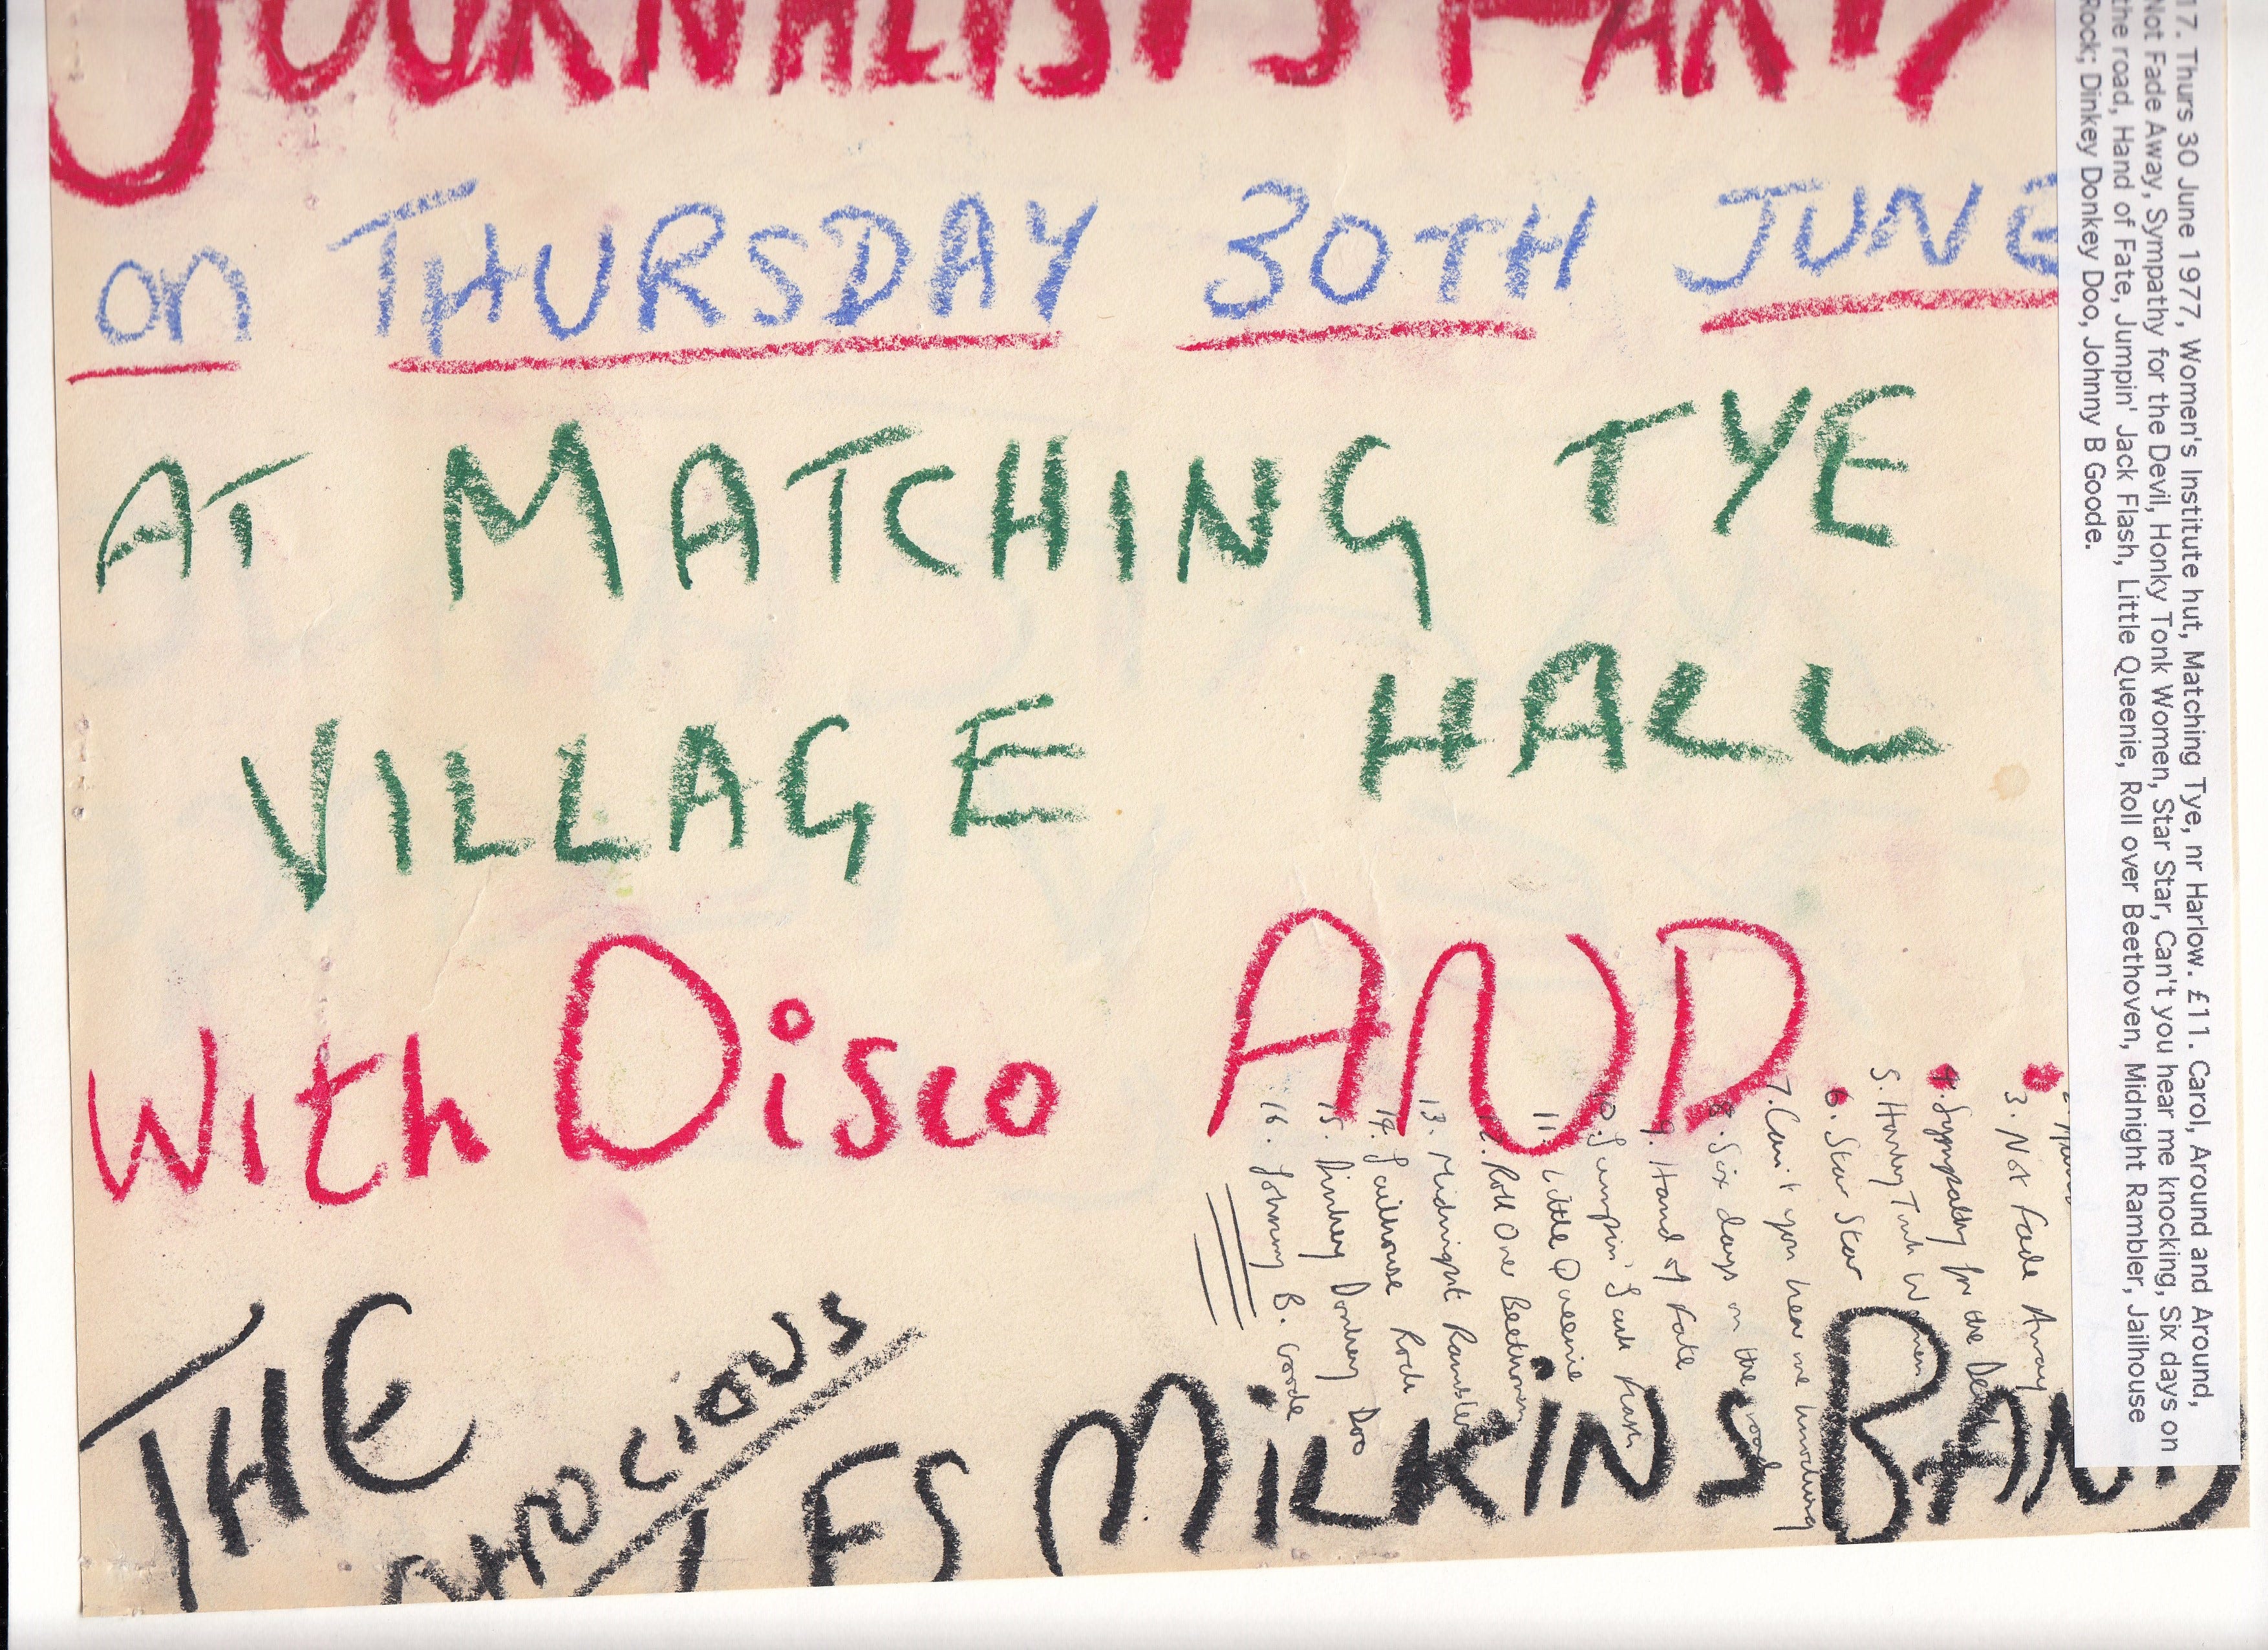 JOURNALISTS PARTY
on THURSDAY 30TH JUNE
AT MATCHING TYE
VILLAGE HALL
With Disco AND...
THE LES MILKINS BAND
3. Not Fade Away
4. Sympathy for the Devil
5. Honky Tonk Women
6. Star Star
7. Can't you hear me knocking
8. Six days on the road
9. Hand of Fate
10. Jumpin' Jack Flash
11. Little Queenie
12. Roll Over Beethoven
13. Midnight Rambler
14. Jailhouse Rock
15. Dinkey Donkey Doo
16. Johnny B. Goode
17. Thurs 30 June 1977, Women's Institute hut, Matching Tye, nr Harlow. £11. Carol, Around and Around,
Not Fade Away, Sympathy for the Devil, Honky Tonk Women, Star Star, Can't you hear me knocking, Six days on
the road, Hand of Fate, Jumpin' Jack Flash, Little Queenie, Roll over Beethoven, Midnight Rambler, Jailhouse
Rock; Dinkey Donkey Doo, Johnny B Goode.